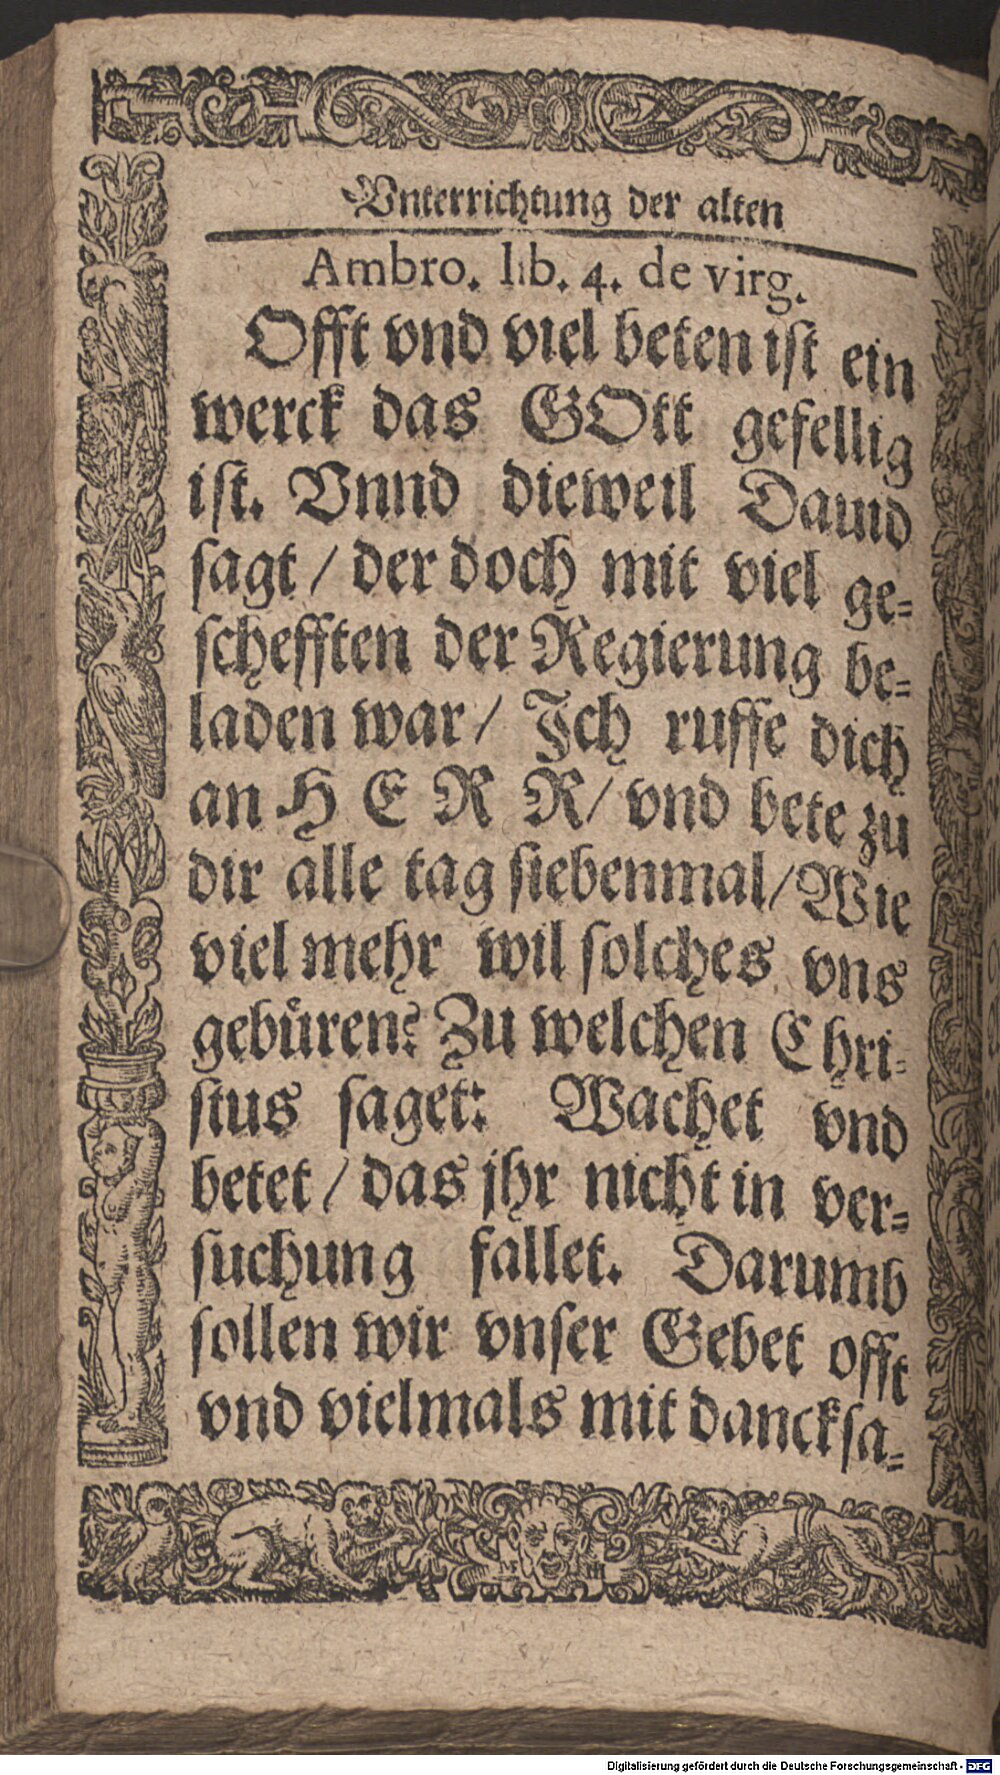 Vnterrichtung der alten
Ambro. lib. 4. de virg.
Offt vnd viel beten ist ein
werck das GOtt gefellig
ist. Vnnd dieweil Dauid
sagt / der doch mit viel ge-
schefften der Regierung be-
laden war / Jch ruffe dich
an HERR / vnd bete zu
dir alle tag siebenmal / Wie
viel mehr wil solches vns
gebüren? Zu welchen Chri-
stus saget: Wachet vnd
betet / das jhr nicht in ver-
suchung fallet. Darumb
sollen wir vnser Gebet offt
vnd vielmals mit dancksa-
Digitalisierung gefördert durch die Deutsche Forschungsgemeinschaft - DFG